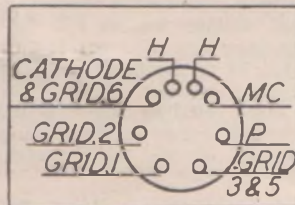 H H
CATHODE
& GRID.6
MC
GRID.2
P
GRID.1
GRID
3&5